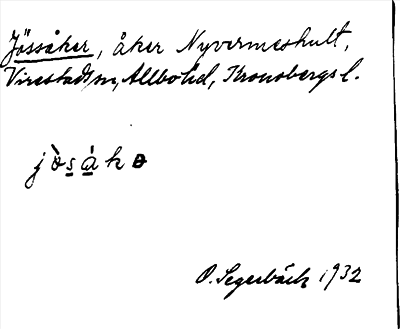 Jössåker, åker Nyvermeshult,
Virestads sn, Allbo hd, Kronobergs l.
jòsákə
O. Segerbäck 1932